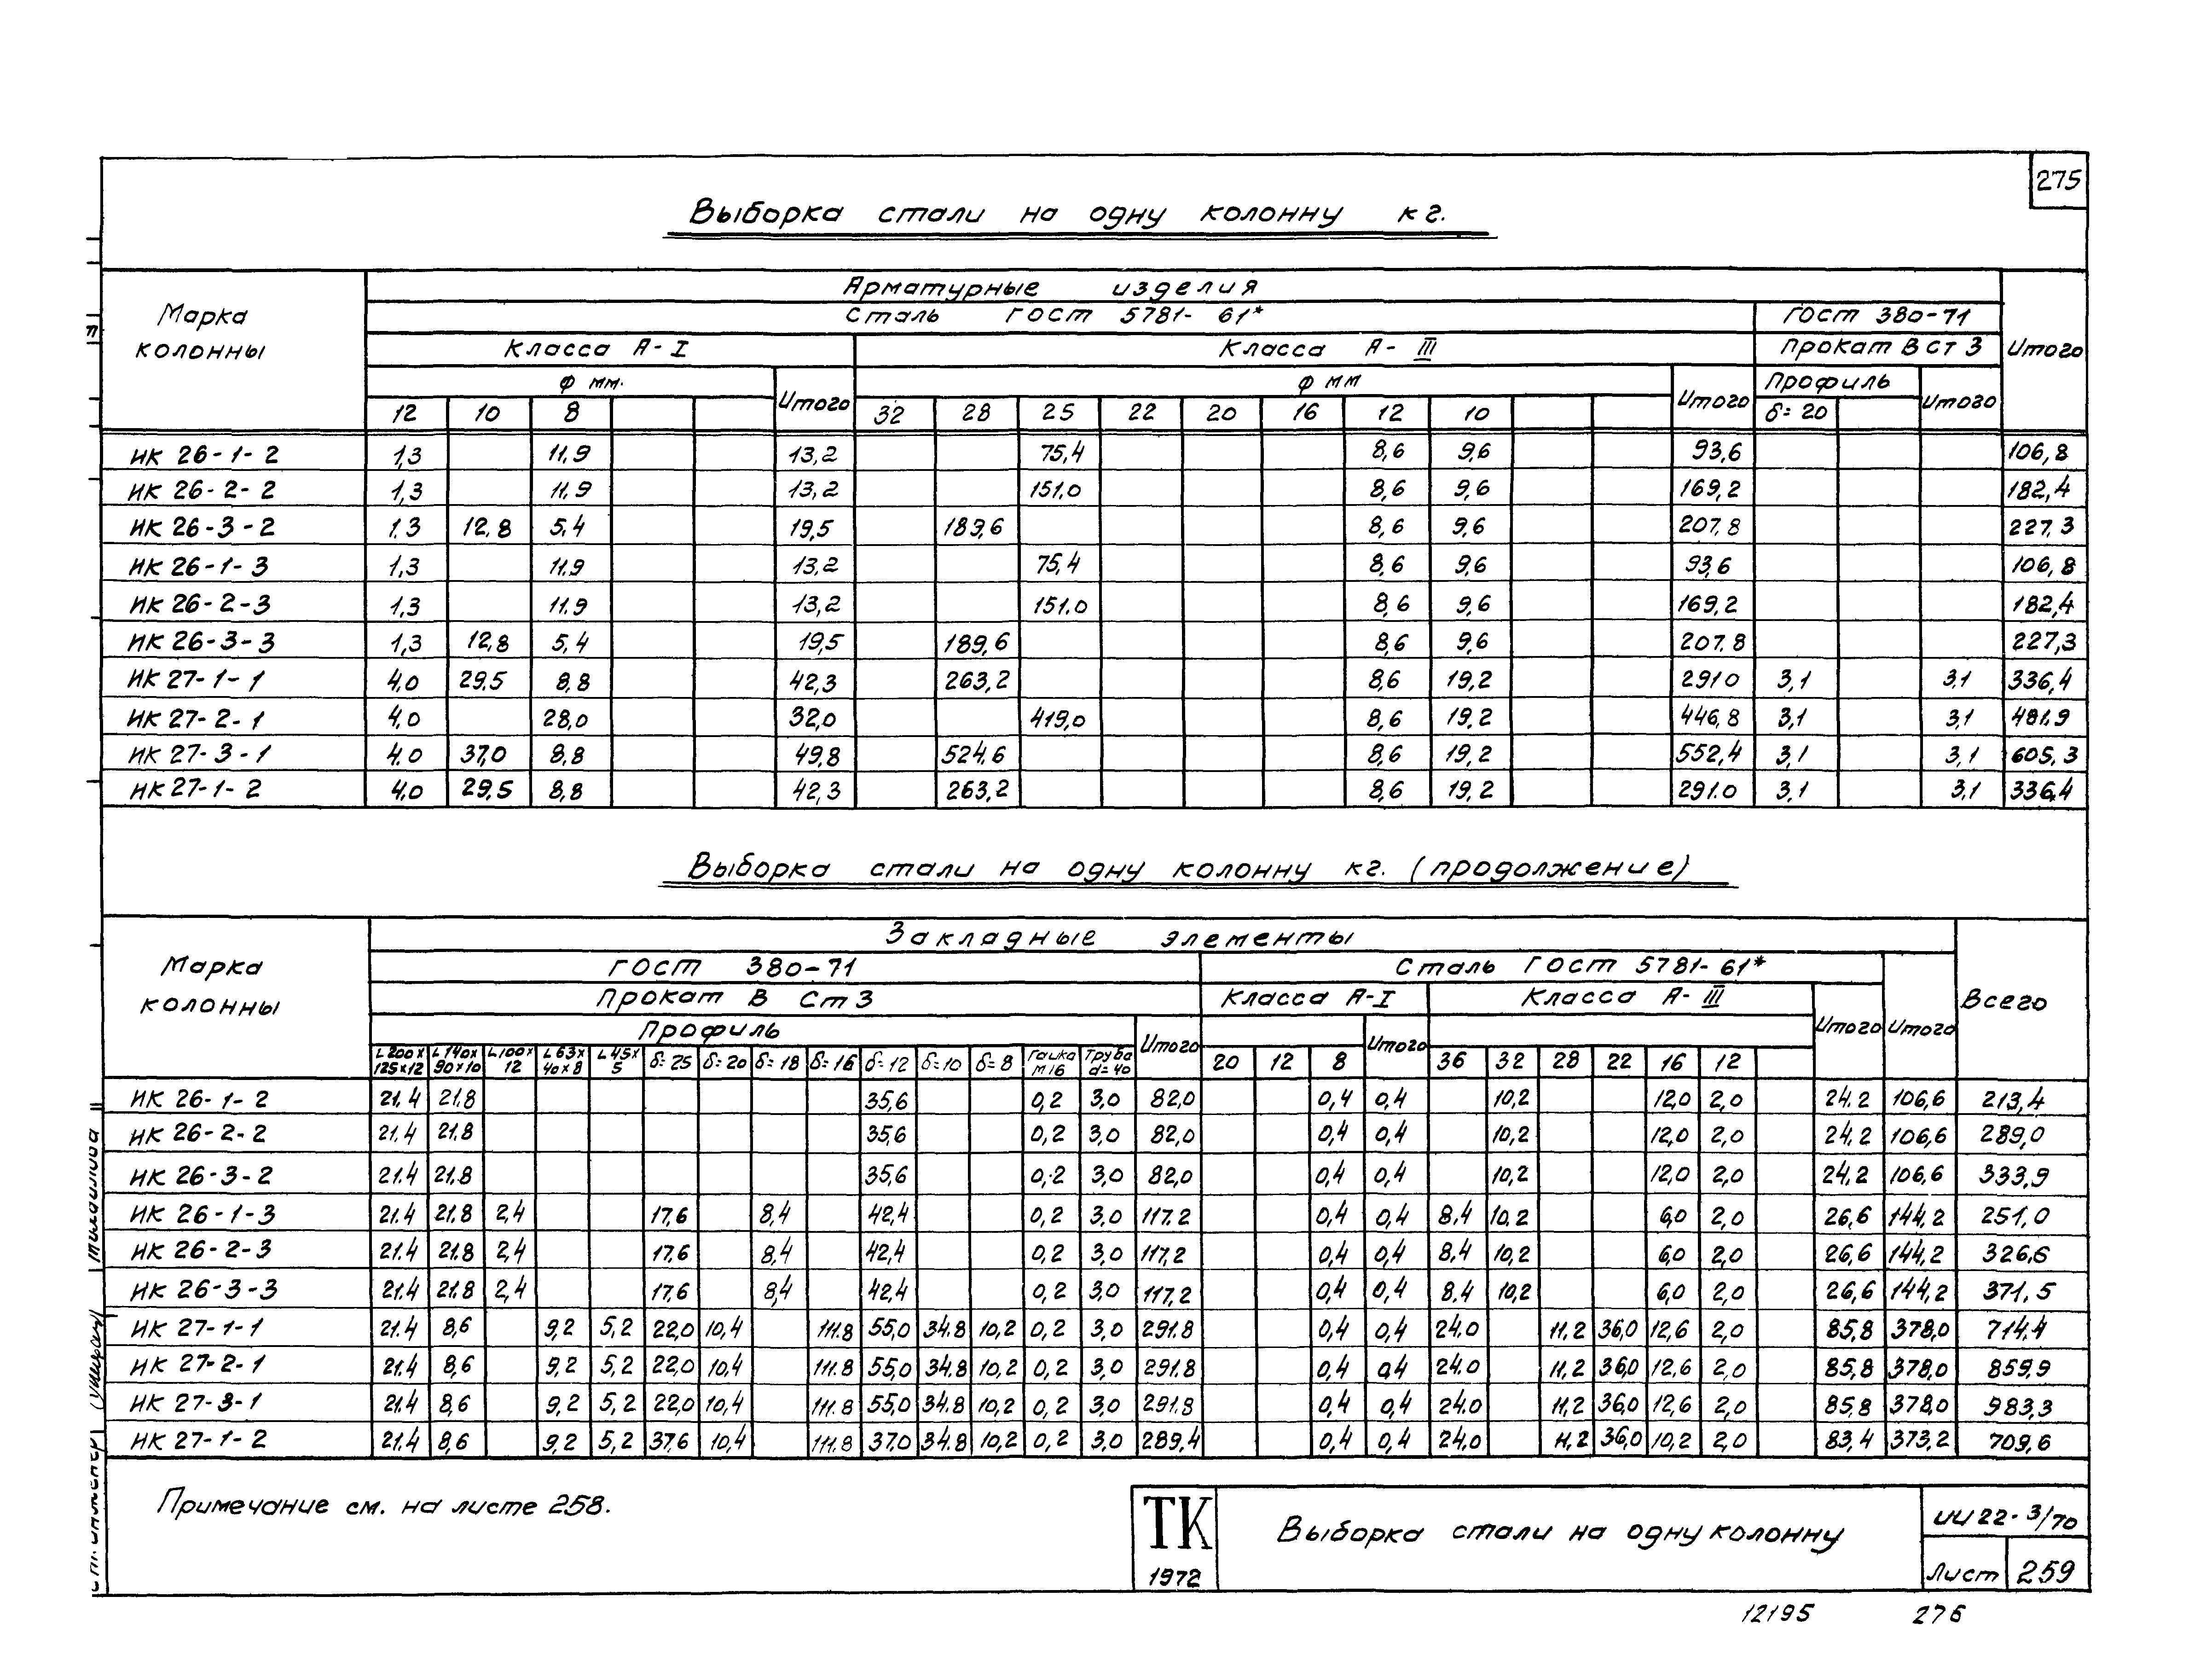 275
Выборка стали на одну колонну кг.
Марка колонны
Арматурные изделия
Итого
Сталь ГОСТ 5781-61* ГОСТ 380-71
Класса А-I Класса А-III Прокат В Ст 3
Ф мм. Итого Ф мм Итого Профиль Итого
12 10 8 32 28 25 22 20 16 12 10 δ=20
ИК 26-1-2 1,3 11,9 13,2 75,4 8,6 9,6 93,6 106,8
ИК 26-2-2 1,3 11,9 13,2 151.0 8,6 9,6 169,2 182,4
ИК 26-3-2 1.3 12,8 5,4 19,5 189,6 8,6 9,6 207,8 227,3
ИК 26-1-3 1,3 11,9 13,2 75,4 8,6 9,6 93,6 106,8
ИК 26-2-3 1,3 11.9 13,2 151.0 8,6 9,6 169,2 182,4
ИК 26-3-3 1,3 12,8 5,4 19,5 189,6 8,6 9,6 207.8 227,3
ИК 27-1-1 4,0 29,5 8,8 42,3 263,2 8,6 19,2 291.0 3,1 3,1 336,4
ИК 27-2-1 4,0 28,0 32,0 419,0 8,6 19,2 446,8 3,1 3,1 481.9
ИК 27-3-1 4,0 37,0 8,8 49,8 524,6 8,6 19,2 552,4 3,1 3,1 605,3
ИК 27-1-2 4,0 29,5 8,8 42,3 263,2 8,6 19,2 291.0 3,1 3,1 336,4
Выборка стали на одну колонну кг. (продолжение)
Марка колонны
Закладные элементы
Всего
ГОСТ 380-71 Сталь ГОСТ 5781-61* Итого
Прокат В Ст 3 Класса А-I Класса А-III Итого
Профиль Итого Итого
L200х125х12 L140х90х10 L100х12 L63х40х8 L45х5 δ=25 δ=20 δ=18 δ=16 δ=12 δ=10 δ=8 Гайка М16 Труба d=40 20 12 8 36 32 28 22 16 12
ИК 26-1-2 21.4 21.8 35,6 0,2 3,0 82,0 0,4 0,4 10,2 12,0 2,0 24.2 106,6 213,4
ИК 26-2-2 21.4 21.8 35,6 0,2 3,0 82,0 0,4 0,4 10,2 12,0 2,0 24,2 106,6 289,0
ИК 26-3-2 21.4 21,8 35,6 0,2 3,0 82,0 0,4 0,4 10,2 12,0 2,0 24,2 106,6 333,9
ИК 26-1-3 21.4 21,8 2,4 17,6 8,4 42,4 0,2 3,0 117.2 0,4 0,4 8,4 10,2 6,0 2,0 26,6 144,2 251,0
ИК 26-2-3 21.4 21.8 2,4 17,6 8,4 42,4 0,2 3,0 117,2 0,4 0,4 8,4 10,2 6,0 2,0 26,6 144,2 326,6
ИК 26-3-3 21.4 21.8 2,4 17,6 8,4 42,4 0,2 3,0 117,2 0,4 0,4 8,4 10,2 6,0 2,0 26,6 144,2 371,5
ИК 27-1-1 21.4 8,6 9,2 5,2 22,0 10,4 111.8 55,0 34.8 10,2 0,2 3,0 291.8 0,4 0,4 24.0 11,2 36,0 12,6 2,0 85,8 378,0 714,4
ИК 27-2-1 21.4 8,6 9,2 5,2 22,0 10,4 111.8 55,0 34,8 10,2 0,2 3,0 291.8 0,4 0,4 24.0 11,2 36,0 12,6 2,0 85,8 378,0 859,9
ИК 27-3-1 21.4 8,6 9,2 5,2 22,0 10,4 111.8 55,0 34.8 10,2 0,2 3,0 291.8 0,4 0,4 24.0 11,2 36,0 12,6 2,0 85,8 378,0 983,3
ИК 27-1-2 21.4 8,6 9,2 5,2 37,6 10,4 111.8 37.0 34.8 10,2 0,2 3,0 289,4 0,4 0,4 24.0 11,2 36,0 10,2 2,0 83,4 373,2 709,6
Примечание см. на листе 258.
ТК
1972
Выборка стали на одну колонну
ИИ 22-3/70
Лист 259
12195 276